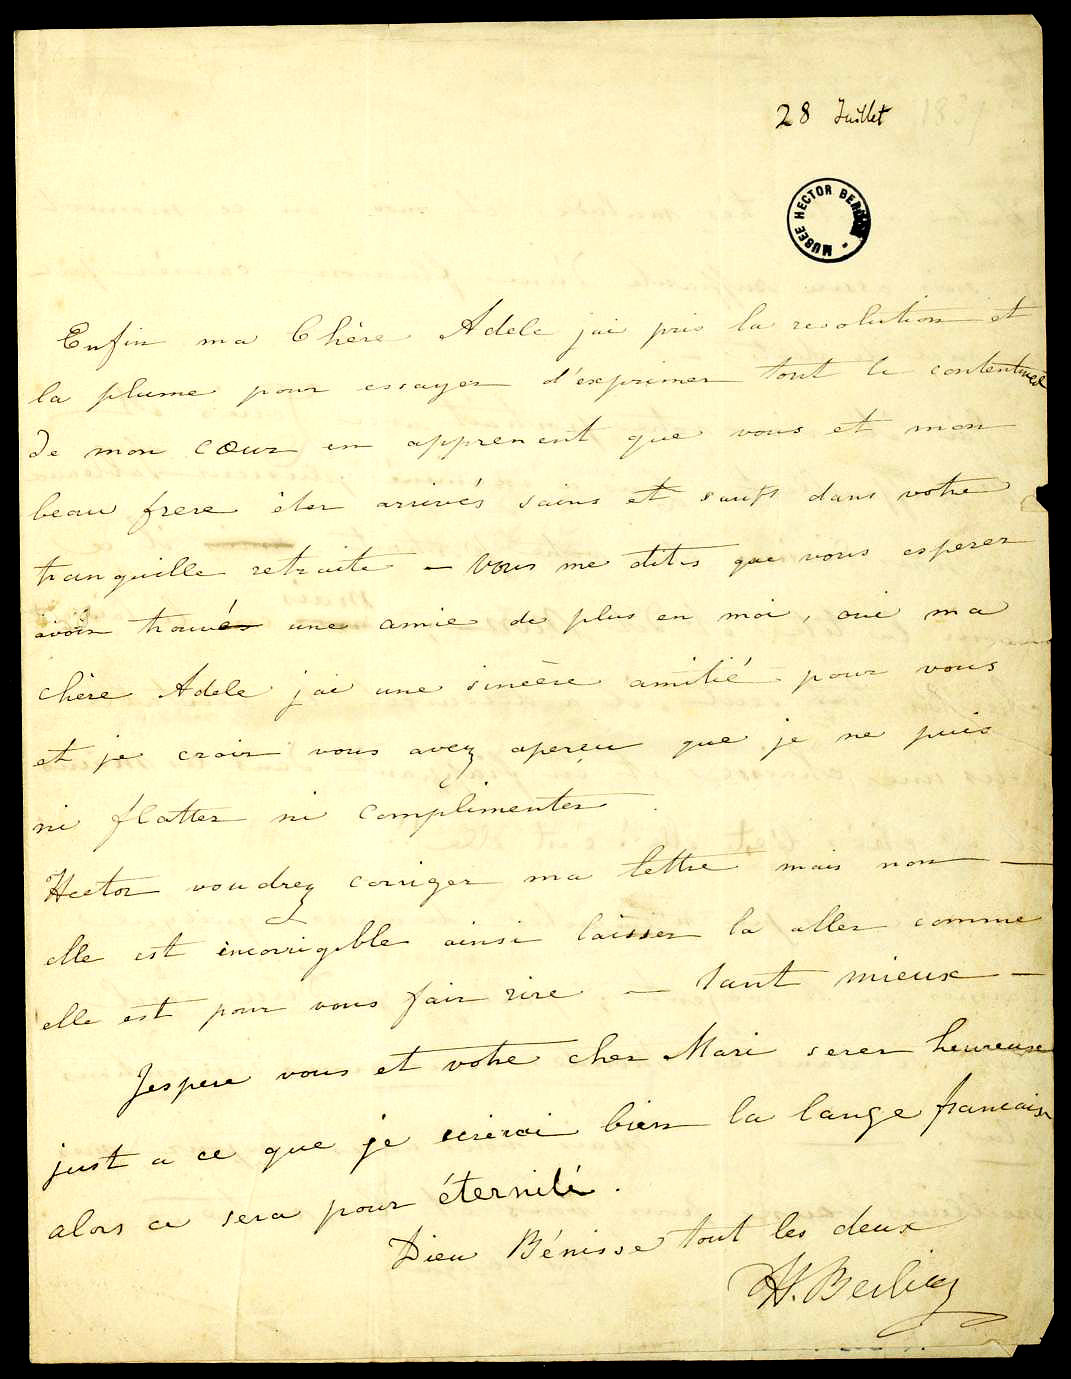 28 Juillet 1839
MUSEE HECTOR BERLIOZ
Enfin ma Chère Adele jai pris la resolution et
la plume pour essayer d'exprimer tout le contentment
de mon cœur en apprenent que vous et mon
beau frere êter arrivés sains et saufs dans votre
tranquille retraite – Vous me dites que vous esperer
avoir trouvés une amie de plus en moi, oui ma
chère Adele jai une sincère amitié pour vous
et je crois vous avez aperçeu que je ne puis
ni flatter ni complimenter.
Hector voudrez corriger ma lettre mais non –
elle est incorrigeble ainsi laisser la aller comme
elle est pour vous fair rire – tant mieux –
Jespere vous et votre cher Mari serer heureuse
just a ce que je ecirerai bien la lange francaise
alors ce sera pour éternité.
Dieu Bénisse tout les deux
H. Berlioz